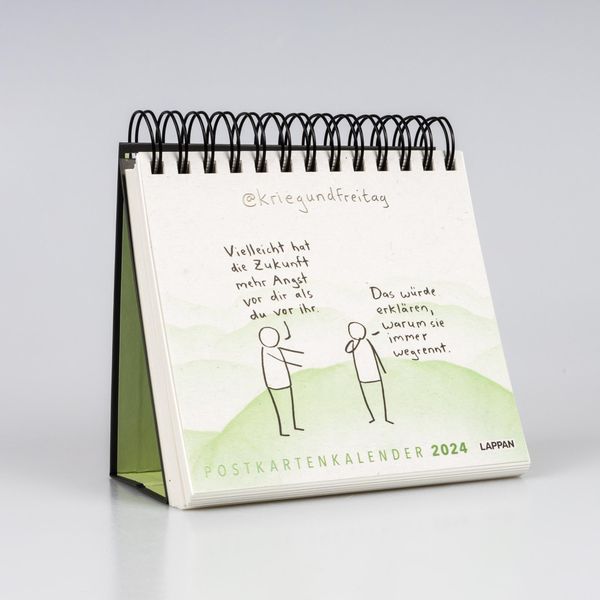 @kriegundfreitag
Vielleicht hat
die Zukunft
mehr Angst
vor dir als
du vor ihr.
Das würde
erklären,
warum sie
immer
wegrennt.
POSTKARTENKALENDER 2024 LAPPAN